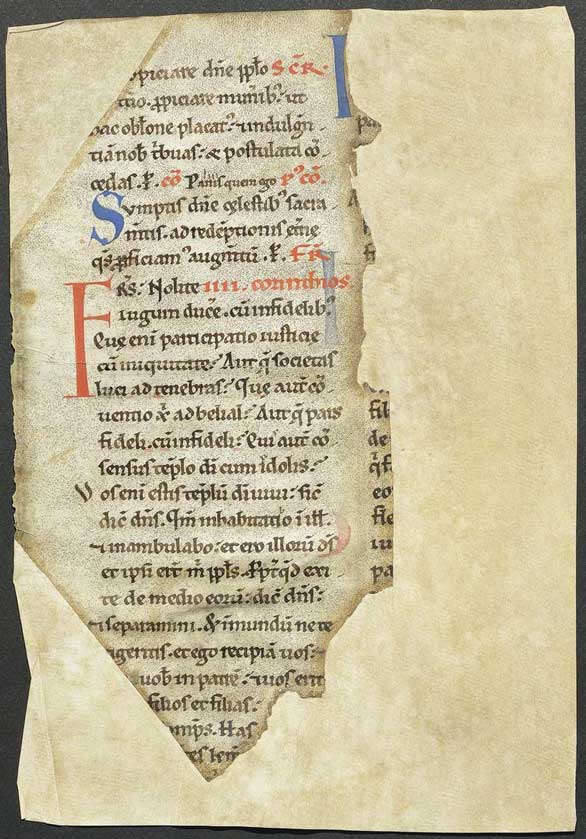 ppiciare dn̄e ppl̄o SCR̄
tio. ppiciare munib⁊ ut
hac obl̄one placat⁊ ⁊ indulgn̄
tiā nob̄ t̄buas: & postulata cō
cedas. P̱. cō Panis quem ego P⁊ cō.
Sumptis dn̄e celestib⁊ sacra
m̄tis. ad redēptionis etn̄e
qs̄ pficiam⁊ augm̄tū. P̱. FR̄
FRS̄: Nolite IIII. corinthios
iugum ducē. cū infidelib⁊
Que eni participatio iusticie
cū iniquitate: Aut q̄ societas
luci ad tenebras: Que aut cō
uentio x̄ ad belial: Aut q̄ pars
fideli. cū infideli: Qui aut cō
sensus tēplo dī cum idolis:
Vos eni estis tēplū dī uiui: sic
dic̄ dn̄s. Qm̄ inhabitabo ī ill.
⁊ inambulabo: et ero illorū ds̄
et ipsi er̄t m̄ ppl̄s. Pp̄t qd̄ exi
te de medio eorū: dic̄ dn̄s:
⁊ separamini. & īmundū ne te
tigeritis. et ego recipiā uos:
uob̄ in patrē. ⁊ uos erit
filios et filias:
omp̄s. Has
fil
de
eo
pa